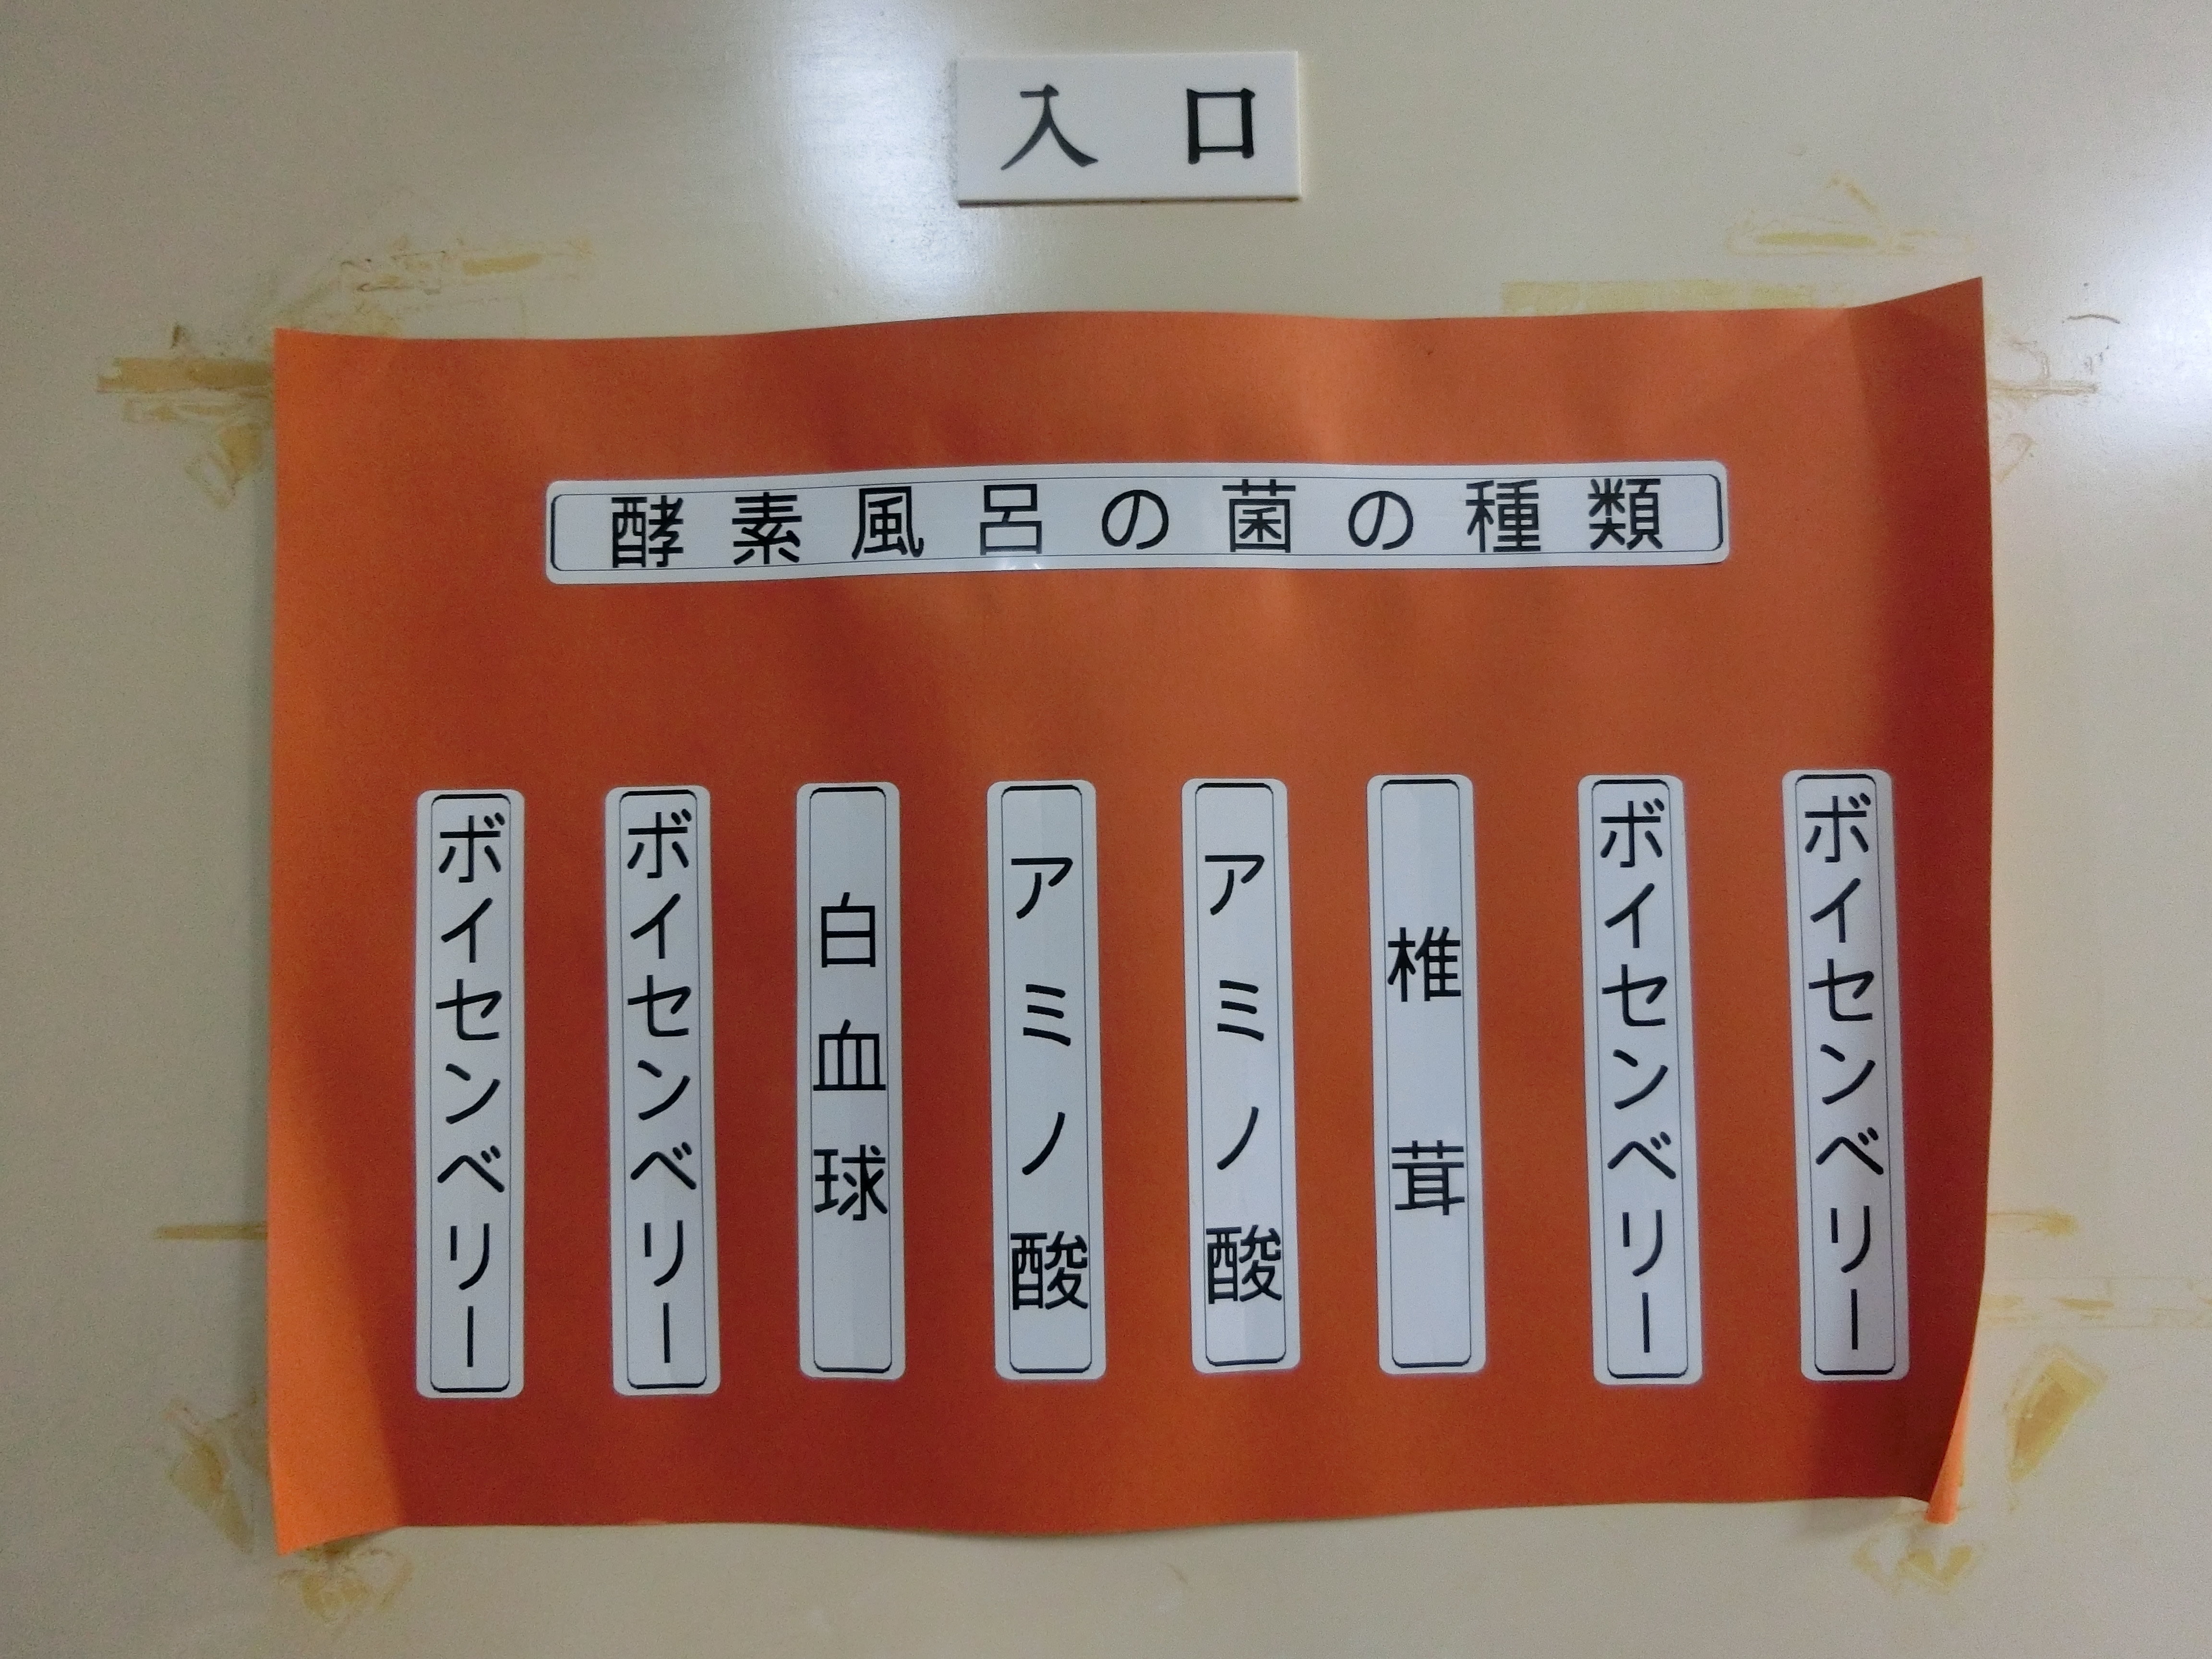 入口
酵素風呂の菌の種類
ボイセンベリー
ボイセンベリー
椎茸
アミノ酸
アミノ酸
白血球
ボイセンベリー
ボイセンベリー